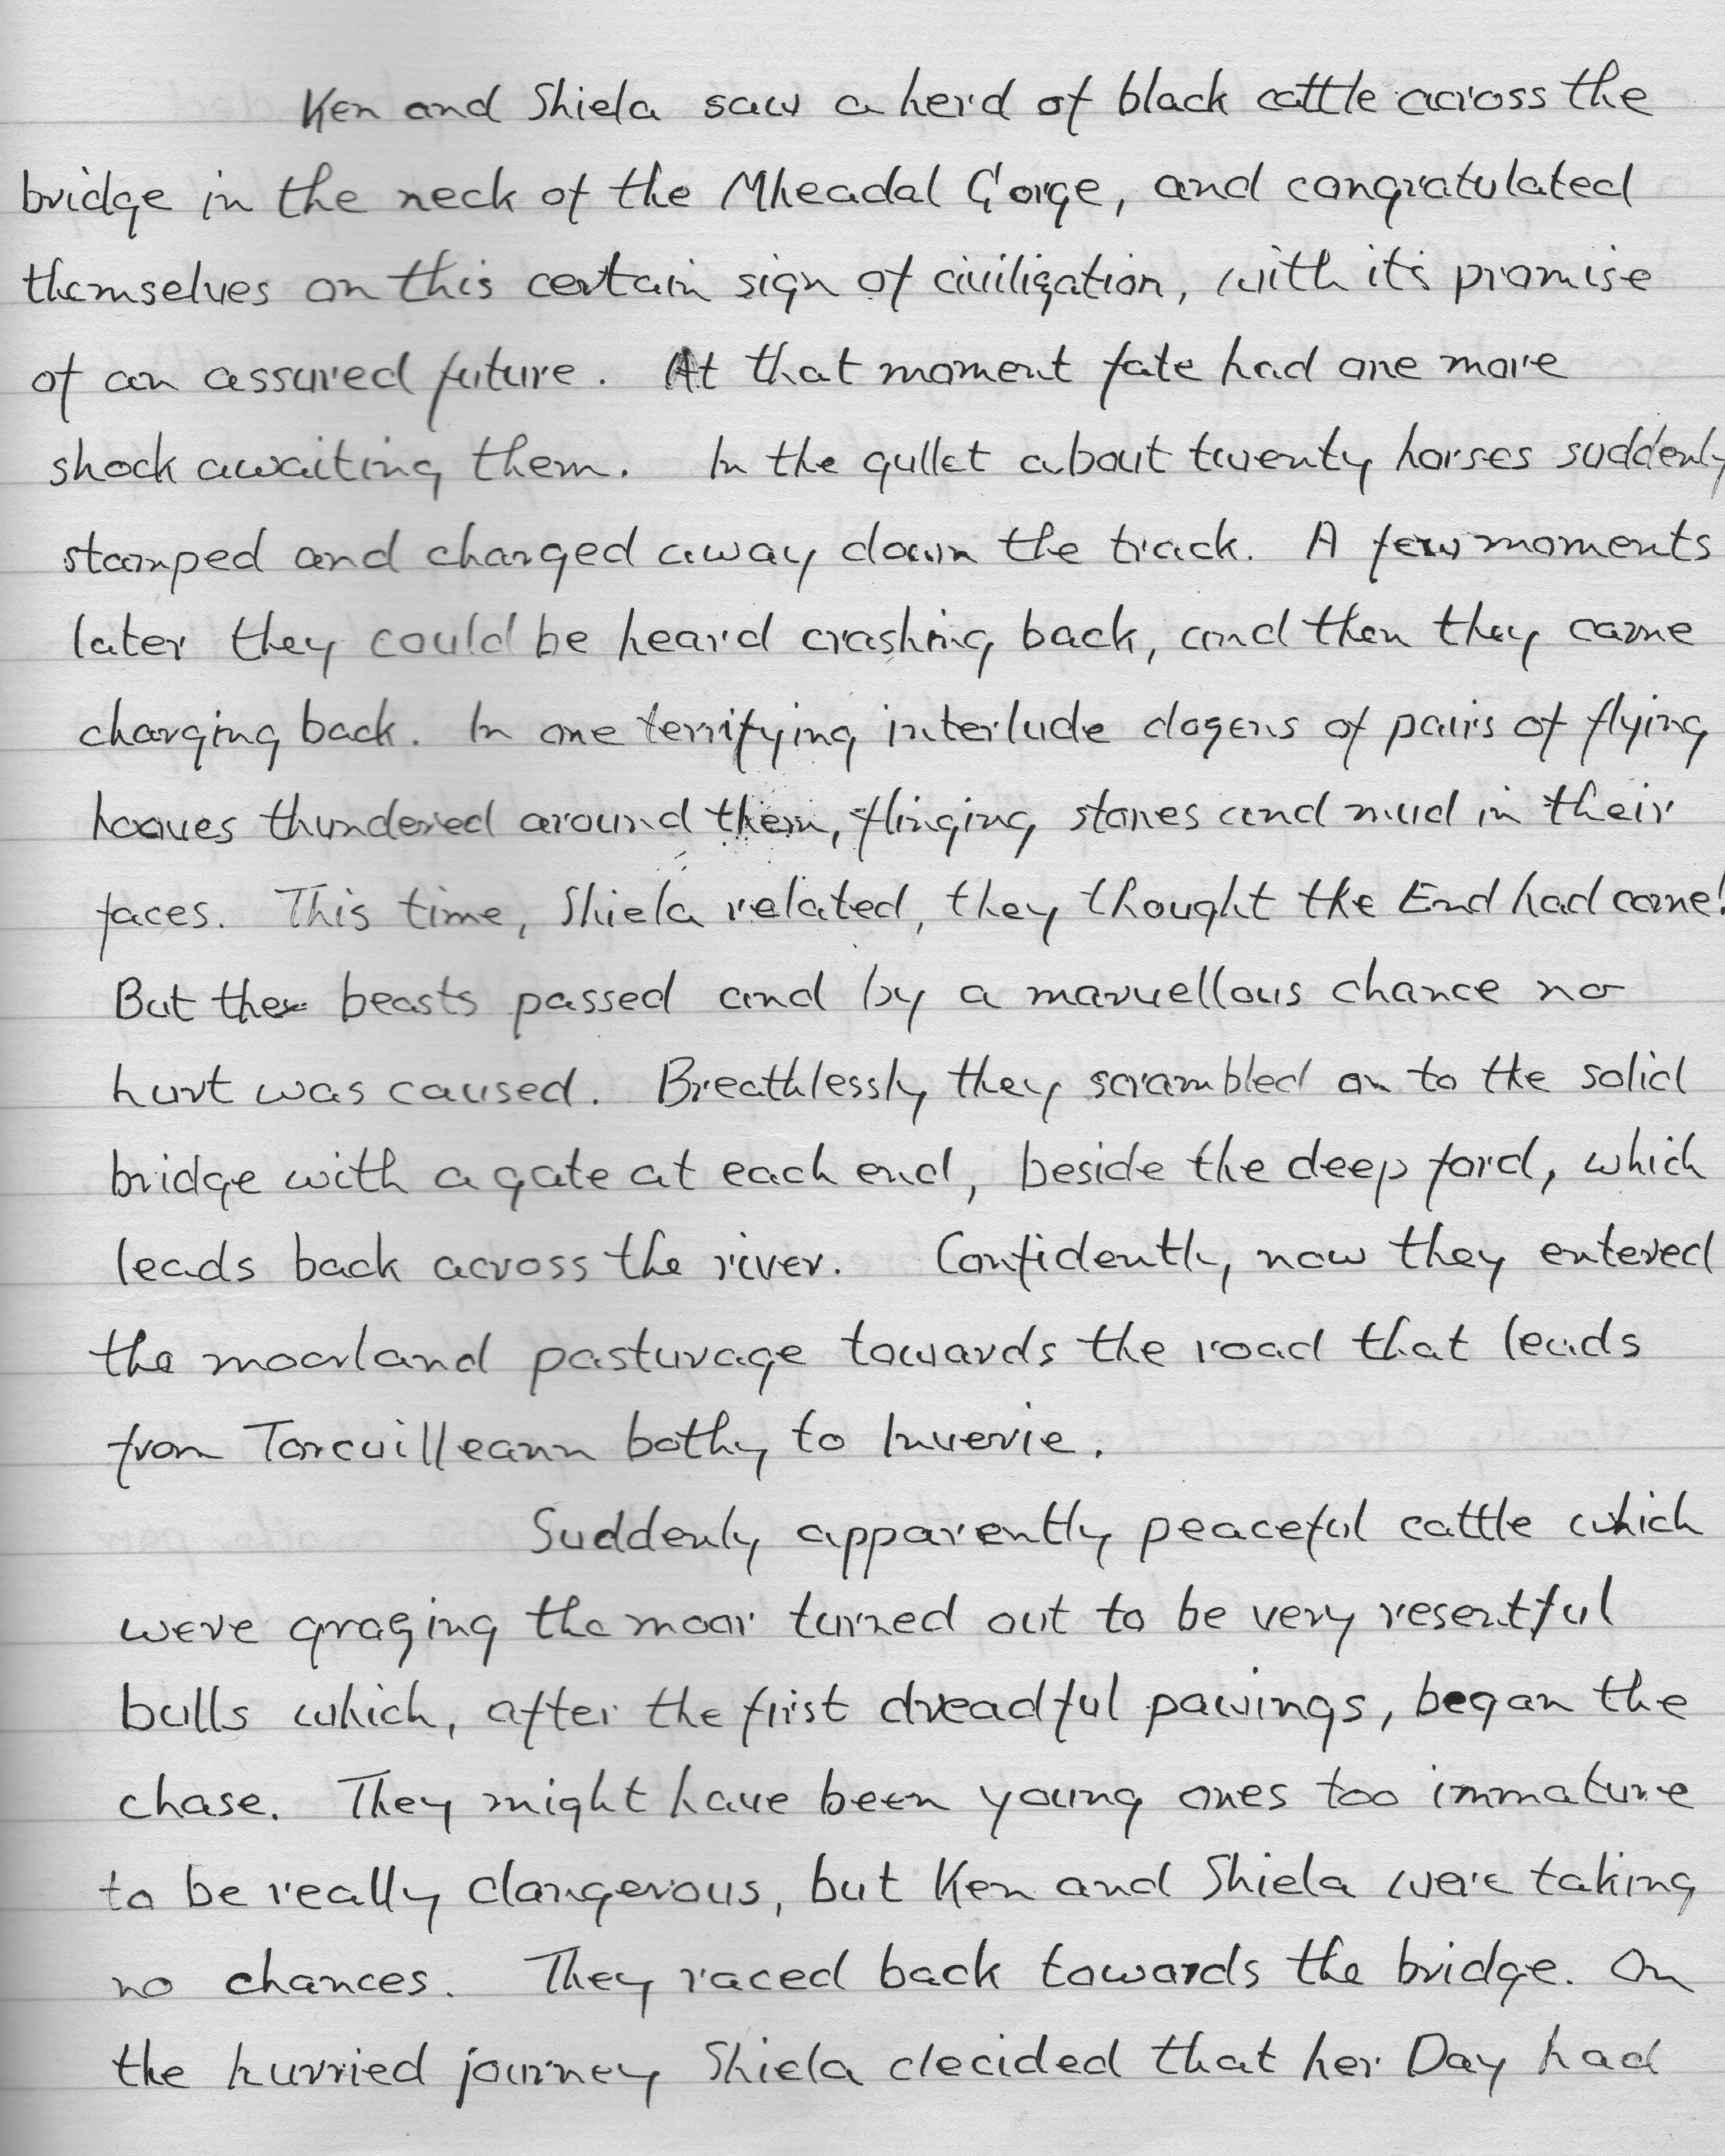 Ken and Shiela saw a herd of black cattle across the
bridge in the neck of the Mheadal Gorge, and congratulated
themselves on this certain sign of civilization, with it's promise
of an assured future. At that moment fate had one more
shock awaiting them. In the gullet about twenty horses suddenly
stamped and charged away down the track. A few moments
later they could be heard crashing back, and then they came
charging back. In one terrifying interlude dozens of pairs of flying
hooves thundered around them, flinging stones and mud in their
faces. This time, Shiela related, they thought the End had come!
But the beasts passed and by a marvellous chance no
hurt was caused. Breathlessly they scrambled on to the solid
bridge with a gate at each end, beside the deep ford, which
leads back across the river. Confidently now they entered
the moorland pasturage towards the road that leads
from Torcuilleann bothy to Inverie.
Suddenly apparently peaceful cattle which
were grazing the moor turned out to be very resentful
bulls which, after the first dreadful pawings, began the
chase. They might have been young ones too immature
to be really dangerous, but Ken and Shiela were taking
no chances. They raced back towards the bridge. On
the hurried journey Shiela decided that her Day had